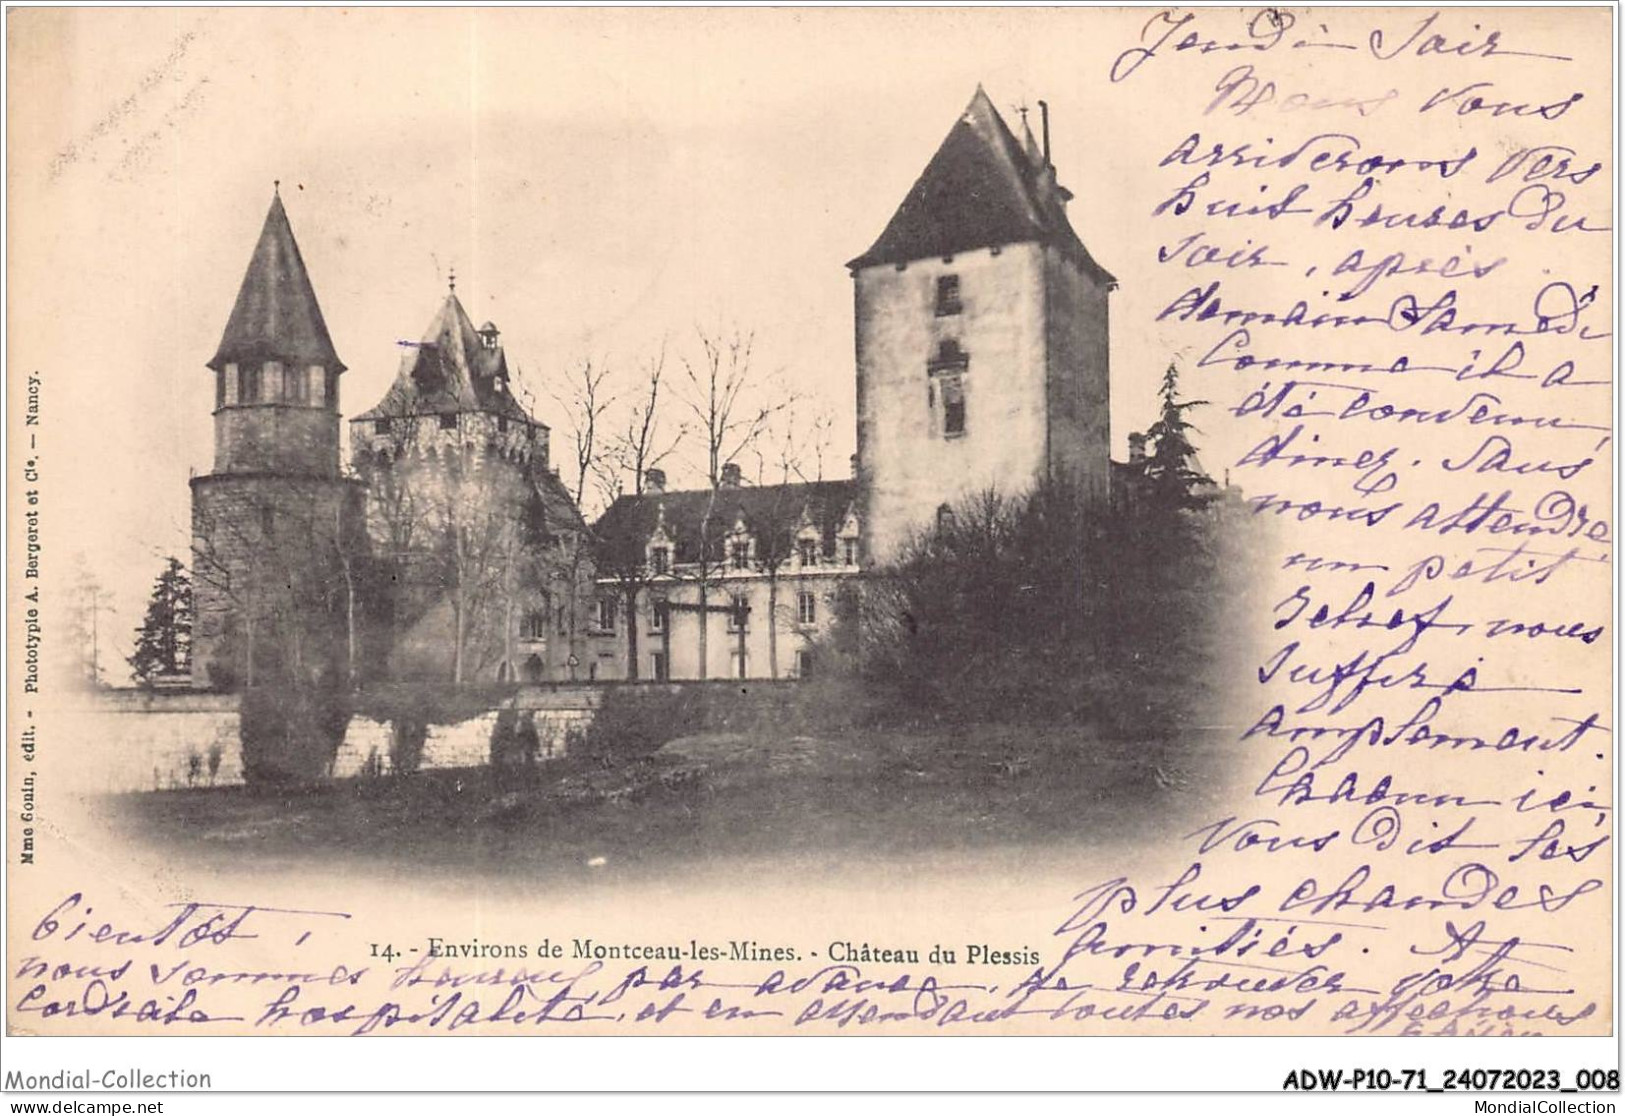 Jeudi Soir
Nous vous
arriverons vers
huit heures du
soir, après
demain Samedi
Comme il a
été convenu,
dîner. Sans
nous attendre,
un petit
relief, nous
suffira
amplement.
Chacun ici,
vous dit les
plus chaudes
amitiés. A
bientôt,
nous sommes heureux, par avance, de retrouver votre
cordiale hospitalité, et en attendant toutes nos affections
14. - Environs de Montceau-les-Mines. - Château du Plessis
Mme Gouin, édit. - Phototypie A. Bergeret et Cie. — Nancy.
Mondial-Collection
ADW-P10-71_24072023_008
www.delcampe.net
MondialCollection